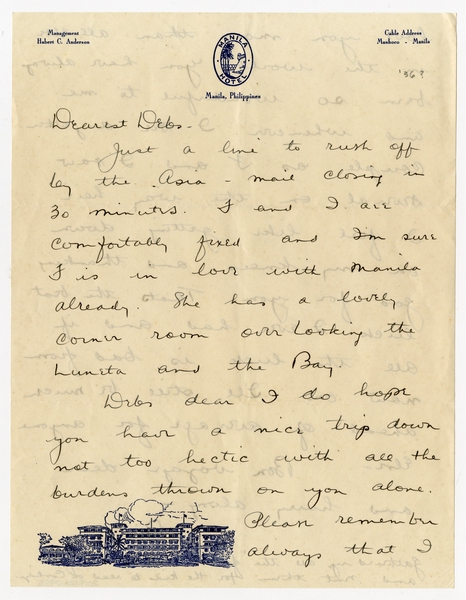 Management
Hubert C. Anderson
MANILA
HOTEL
Manila, Philippines
Cable Address
Manhoco - Manila
'36?
Dearest Debs -
Just a line to rush off
by the Asia - mail closing in
30 minutes. F and I are
comfortably fixed and I'm sure
F is in love with Manila
already. She has a lovely
corner room overlooking the
Luneta and the Bay.
Debs dear I do hope
you have a nice trip down
not too hectic with all the
burdens thrown on you alone.
Please remember
always that I